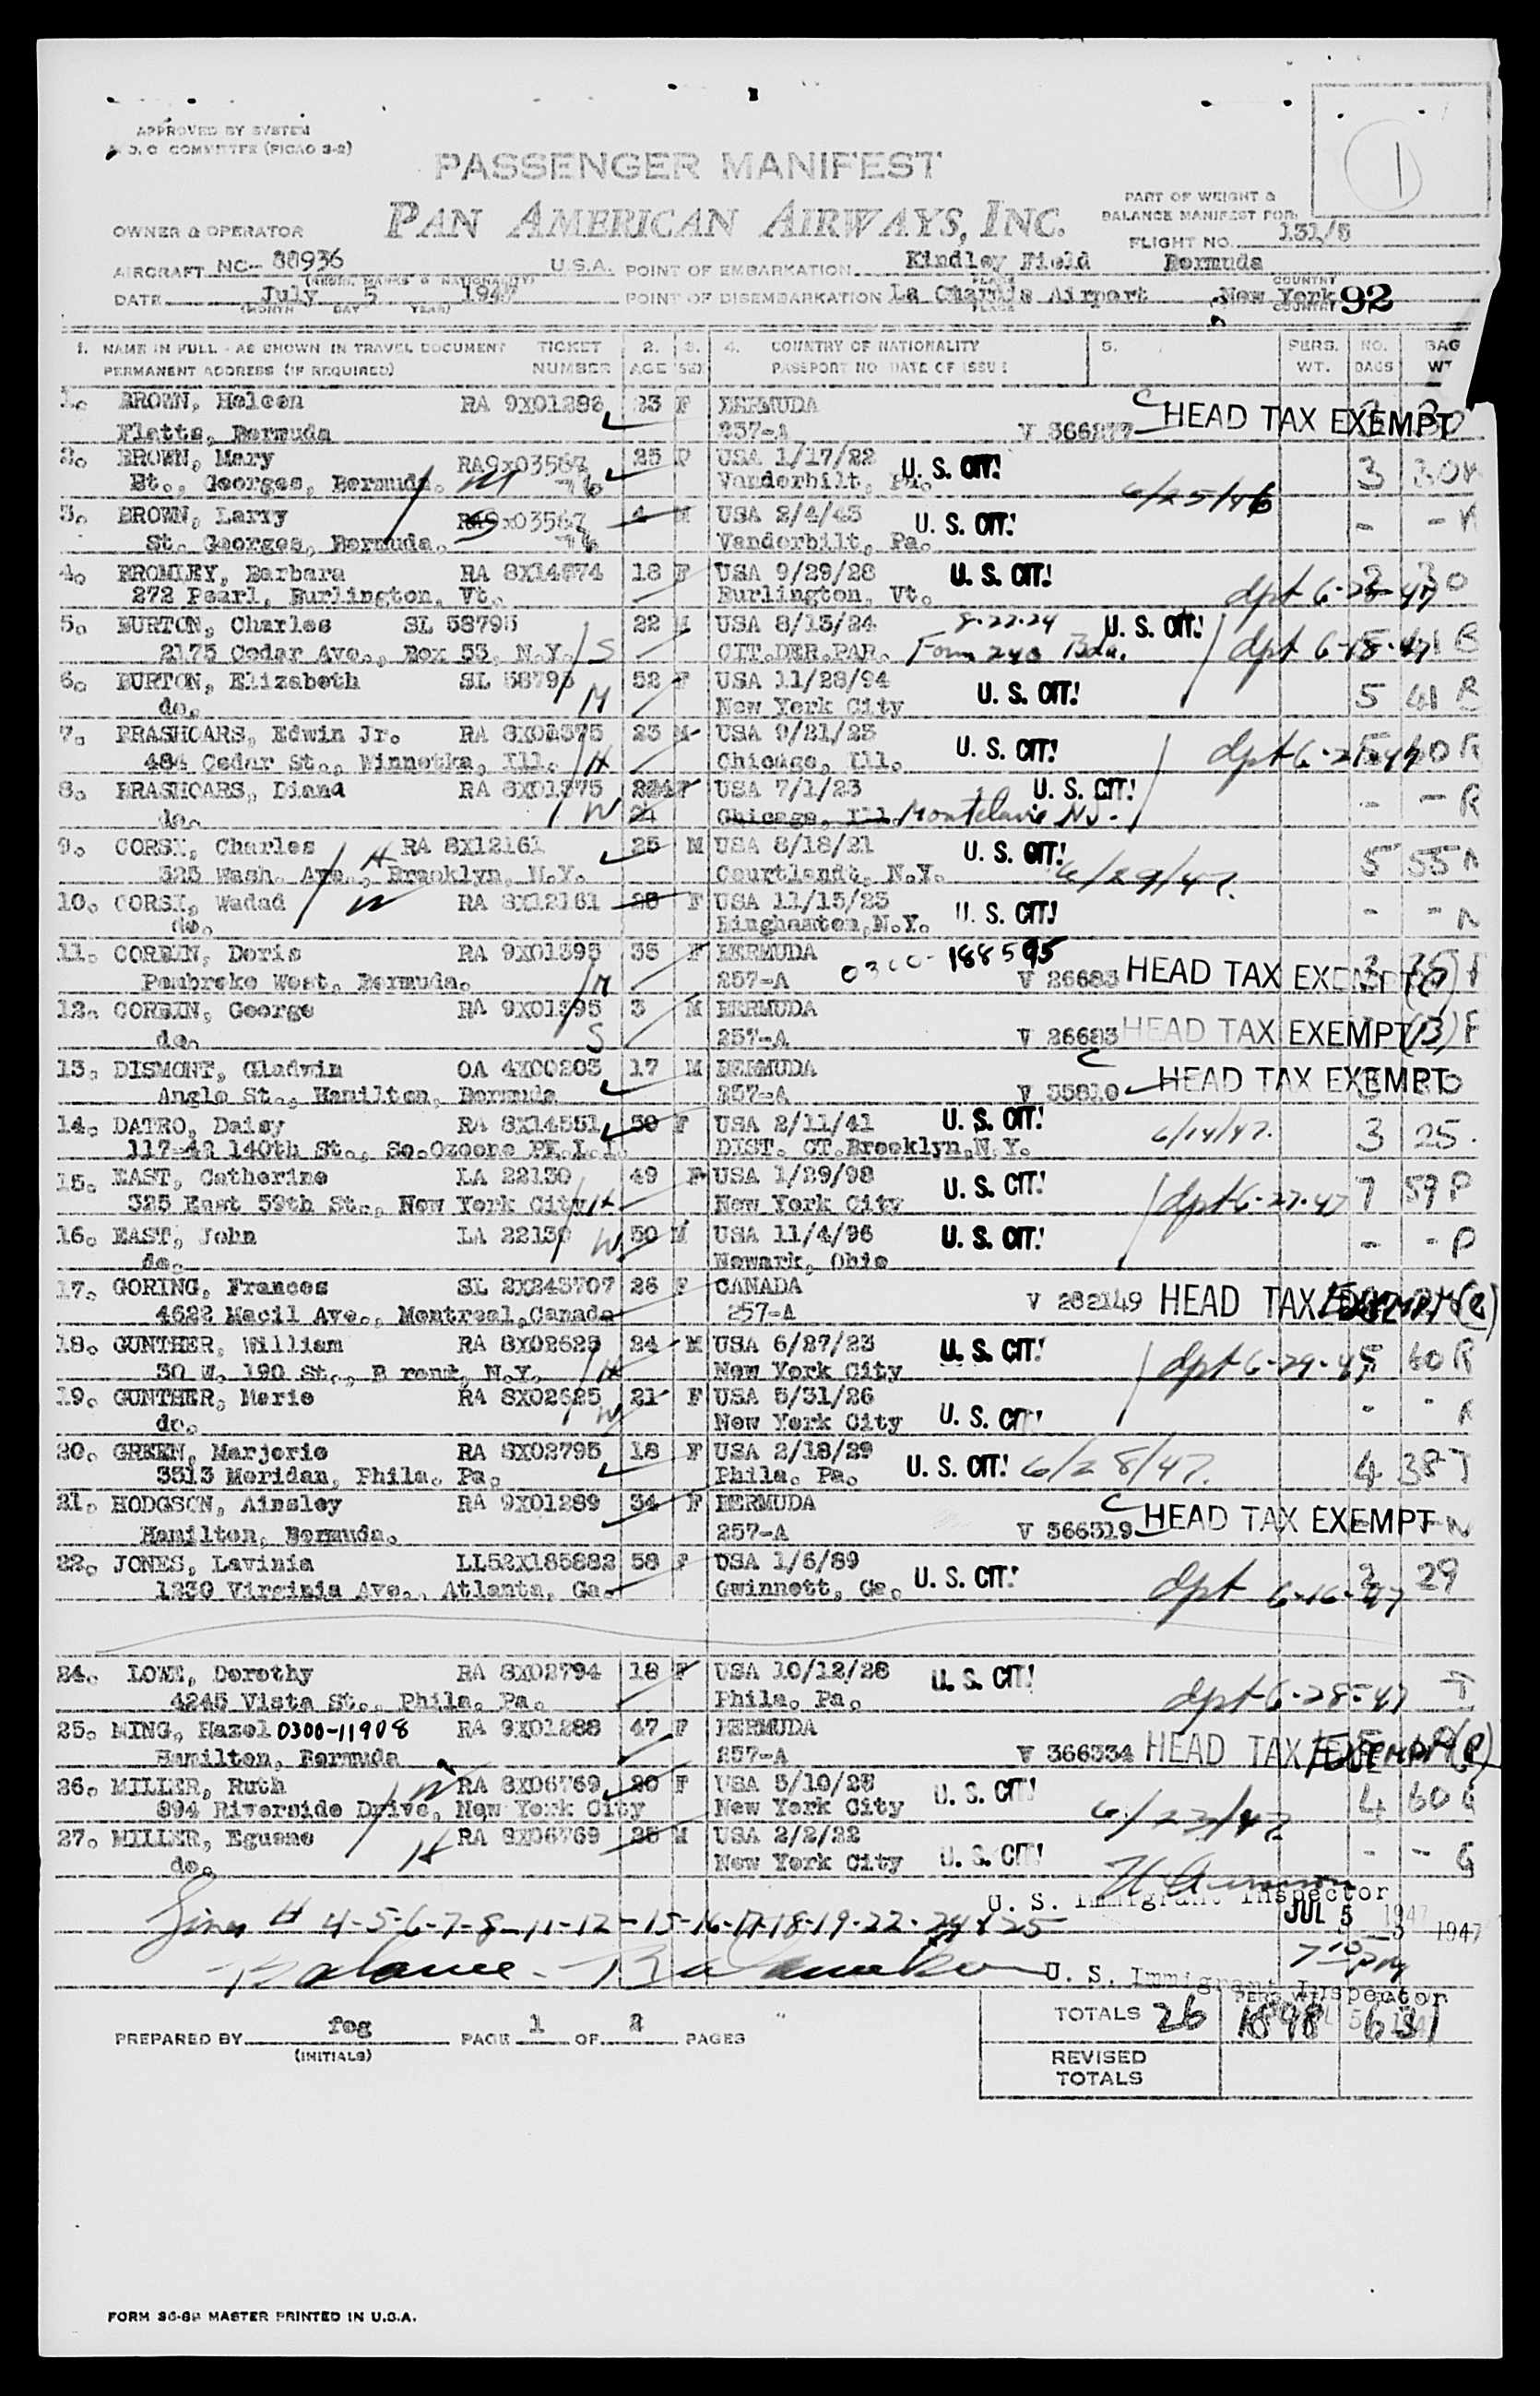 APPROVED BY SYSTEM
COMMITTEE (PICAO 3-2)
PASSENGER MANIFEST
1
PART OF WEIGHT &
BALANCE MANIFEST FOR:
OWNER & OPERATOR
PAN AMERICAN AIRWAYS, INC.
FLIGHT NO. 131/5
AIRCRAFT NC- 88936 U.S.A. POINT OF EMBARKATION Kindley Field Bermuda
DATE July 5 1947 POINT OF DISEMBARKATION Airport New York 92
(MONTH DAY YEAR) PLACE COUNTRY
1. NAME IN FULL - AS SHOWN IN TRAVEL DOCUMENT TICKET 2. 3. 4. COUNTRY OF NATIONALITY 5. PERS. NO. BAG
PERMANENT ADDRESS (IF REQUIRED) NUMBER AGE SEX PASSPORT NO DATE OF ISSUE WT. BAGS WT
1. BROWN, Heleen RA 9X01288 23 F BERMUDA C HEAD TAX EXEMPT
Flatts, Bermuda 257-A
2. BROWN, Mary RA9x03567 25 F USA 1/17/22 U. S. CIT! 3 30
St., Georges, Bermuda. M Vanderbilt, Pa.
3. BROWN, Larry RA9x03567 4 M USA 2/4/43 U. S. CIT! - -
St. Georges, Bermuda. Vanderbilt, Pa.
4. BROMLEY, Barbara RA 8X14874 18 F USA 9/29/28 U. S. CIT!
272 Pearl, Burlington, Vt. Burlington, Vt. dpt 6-28-47
5. BURTON, Charles SL 58795 22 M USA 8/13/24 8-22-24 U. S. CIT!
2175 Cedar Ave., Box 53, N.Y. S CIT.DER.PAR. Form 240 Bda. dpt 6-18-47
6. BURTON, Elizabeth SL 58795 52 F USA 11/28/94 U. S. CIT! 5 41 B
do. M New York City
7. BRASHOARS, Edwin Jr. RA 8X01375 23 M USA 9/21/23 U. S. CIT!
484 Cedar St., Winnetka, Ill. H Chicago, Ill. dpt 6-21-47
8. BRASHOARS, Diana RA 8X01375 F USA 7/1/23 U. S. CIT! - - R
do. W 24 Chicago, Ill. Montclair NJ.
9. CORSI, Charles RA 8X12161 25 M USA 8/18/21 U. S. CIT! 5 55 N
325 Wash. Ave., Brooklyn, N.Y. H Courtlandt, N.Y. 6/29/47.
10. CORSI, Wadad RA 8X12161 F USA 11/15/23 U. S. CIT! - - N
do. W Binghamton, N.Y.
11. CORBIN, Doris RA 9X01395 35 F BERMUDA 0300-188595
Pembroke West, Bermuda. M 257-A V 26683 HEAD TAX EXEMPT
12. CORBIN, George RA 9X01395 3 M BERMUDA
do. S 257-A V 26683 HEAD TAX EXEMPT
13. DISMONT, Gladwin OA 4X00203 17 M BERMUDA C
Angle St., Hamilton, Bermuda 257-A V 35810 HEAD TAX EXEMPT
14. DATRO, Daisy RA 8X14551 50 F USA 2/11/41 U. S. CIT! 6/14/47. 3 25.
117-42 140th St., So.Ozone PK.L.I. DIST. CT.Brooklyn,N.Y.
15. EAST, Catherine LA 22130 49 F USA 1/29/98 U. S. CIT! 7 59 P
325 East 59th St., New York City H New York City dpt 6-27-47
16. EAST, John LA 22130 50 M USA 11/4/96 U. S. CIT! - - P
do. W Newark, Ohio
17. GORING, Frances SL 2X243707 26 F CANADA
4622 Macil Ave., Montreal,Canada 257-A V 282149 HEAD TAX EXEMPT
18. GUNTHER, William RA 8X02625 24 M USA 6/27/23 U. S. CIT! 60 R
30 W. 190 St., N.Y. H New York City dpt 6-29-47
19. GUNTHER, Marie RA 8X02625 21 F USA 5/31/26 U. S. CIT! - - R
do. W New York City
20. GREEN, Marjorie RA 8X02795 18 F USA 2/18/29 U. S. CIT! 6/28/47. 4 38 T
3313 Meridan, Phila. Pa. Phila. Pa.
21. HODGSON, Ainsley RA 9X01289 34 F BERMUDA C
Hamilton, Bermuda. 257-A V 366319 HEAD TAX EXEMPT
22. JONES, Lavinia LL52X185882 58 F USA 1/6/89 U. S. CIT! 2 29
1230 Virginia Ave., Atlanta, Ga. Gwinnett, Ga. dpt 6-16-47
24. LOWE, Dorothy RA 8X02794 18 F USA 10/12/28 U. S. CIT! T
4245 Vista St., Phila. Pa. Phila. Pa. dpt 6-28-47
25. MING, Hazel 0300-11908 RA 9X01288 47 F BERMUDA
Hamilton, Bermuda 257-A V 366334 HEAD TAX EXEMPT
26. MILLER, Ruth W RA 8X06769 20 F USA U. S. CIT! 4 60 G
894 Riverside Drive, New York City New York City 6/23/47
27. MILLER, Eguene RA 8X06769 25 M USA 2/2/22 U. S. CIT! - - G
do. H New York City
U. S. Immigrant Inspector
JUL 5 1947
Lines # 4-5-6-7-8-11-12-15-16-17-18-19-22-24 & 25
Balance -
U. S. Immigrant Inspector
TOTALS 26 631
PREPARED BY fog PAGE 1 OF 2 PAGES
(INITIALS)
REVISED
TOTALS
FORM MASTER PRINTED IN U.S.A.